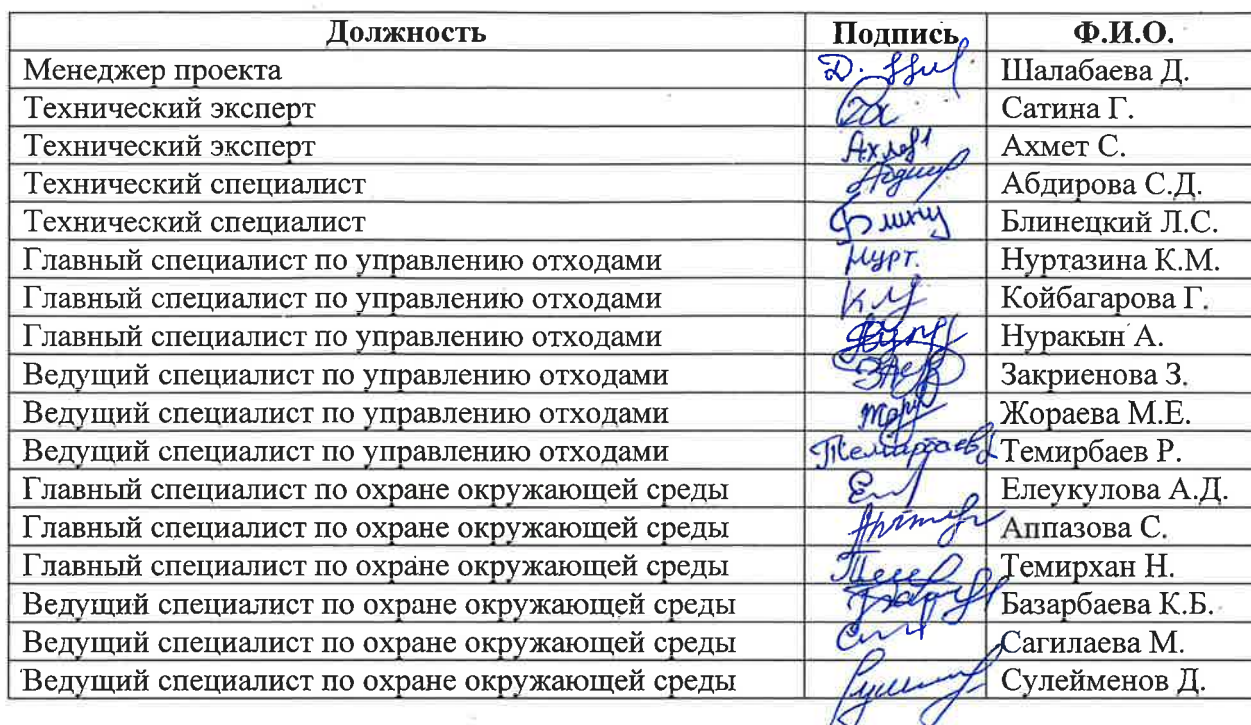 Должность Подпись Ф.И.О.
Менеджер проекта Шалабаева Д.
Технический эксперт Сатина Г.
Технический эксперт Ахмет С.
Технический специалист Абдирова С.Д.
Технический специалист Блинецкий Л.С.
Главный специалист по управлению отходами Нурт. Нуртазина К.М.
Главный специалист по управлению отходами Койбагарова Г.
Главный специалист по управлению отходами Нуракын А.
Ведущий специалист по управлению отходами Закриенова З.
Ведущий специалист по управлению отходами Жораева М.Е.
Ведущий специалист по управлению отходами Темирбаев Р.
Главный специалист по охране окружающей среды Елеукулова А.Д.
Главный специалист по охране окружающей среды Аппазова С.
Главный специалист по охране окружающей среды Темирхан Н.
Ведущий специалист по охране окружающей среды Базарбаева К.Б.
Ведущий специалист по охране окружающей среды Сагилаева М.
Ведущий специалист по охране окружающей среды Сулейменов Д.